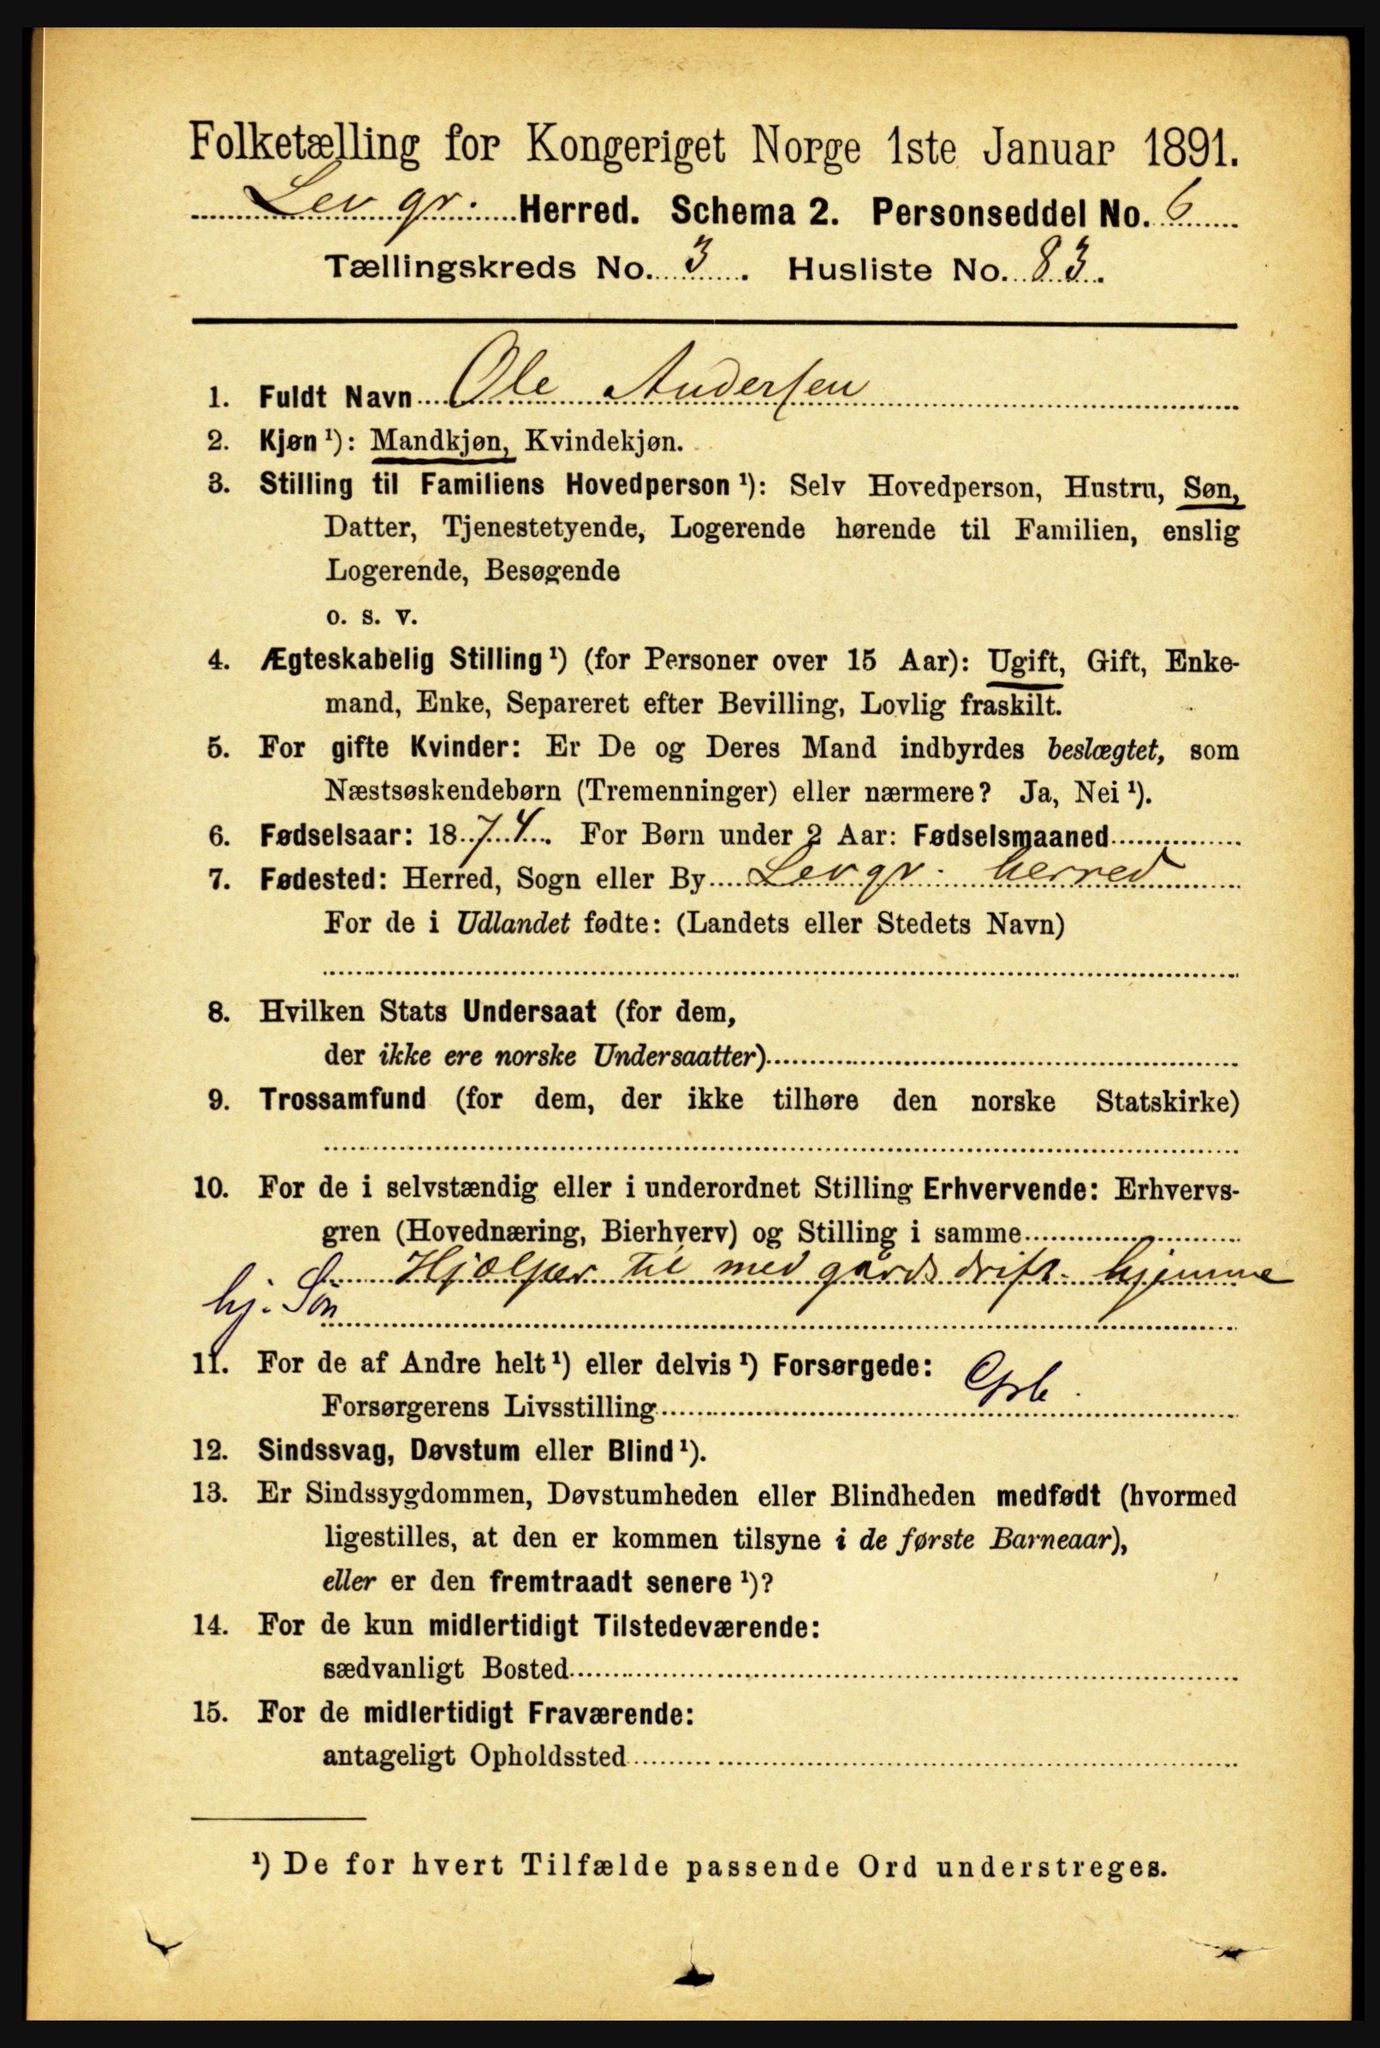 Folketælling for Kongeriget Norge 1ste Januar 1891.
Lev gr. Herred. Schema 2. Personseddel No. 6
Tællingskreds No. 3. Husliste No. 83.
1. Fuldt Navn Ole Andersen
2. Kjøn ¹): Mandkjøn, Kvindekjøn.
3. Stilling til Familiens Hovedperson ¹): Selv Hovedperson, Hustru, Søn,
Datter, Tjenestetyende, Logerende hørende til Familien, enslig
Logerende, Besøgende
o. s. v.
4. Ægteskabelig Stilling ¹) (for Personer over 15 Aar): Ugift, Gift, Enke-
mand, Enke, Separeret efter Bevilling, Lovlig fraskilt.
5. For gifte Kvinder: Er De og Deres Mand indbyrdes beslægtet, som
Næstsøskendebørn (Tremenninger) eller nærmere? Ja, Nei ¹).
6. Fødselsaar: 1874. For Børn under 2 Aar: Fødselsmaaned
7. Fødested: Herred, Sogn eller By Lev gr. herred
For de i Udlandet fødte: (Landets eller Stedets Navn)
8. Hvilken Stats Undersaat (for dem,
der ikke ere norske Undersaatter)
9. Trossamfund (for dem, der ikke tilhøre den norske Statskirke)
10. For de i selvstændig eller i underordnet Stilling Erhvervende: Erhvervs-
gren (Hovednæring, Bierhverv) og Stilling i samme
Hjælper til med gårdsdrift hjemme
hj. Søn
11. For de af Andre helt ¹) eller delvis ¹) Forsørgede:
Forsørgerens Livsstilling
12. Sindssvag, Døvstum eller Blind ¹).
13. Er Sindssygdommen, Døvstumheden eller Blindheden medfødt (hvormed
ligestilles, at den er kommen tilsyne i de første Barneaar),
eller er den fremtraadt senere ¹)?
14. For de kun midlertidigt Tilstedeværende:
sædvanligt Bosted
15. For de midlertidigt Fraværende:
antageligt Opholdssted
¹) De for hvert Tilfælde passende Ord understreges.